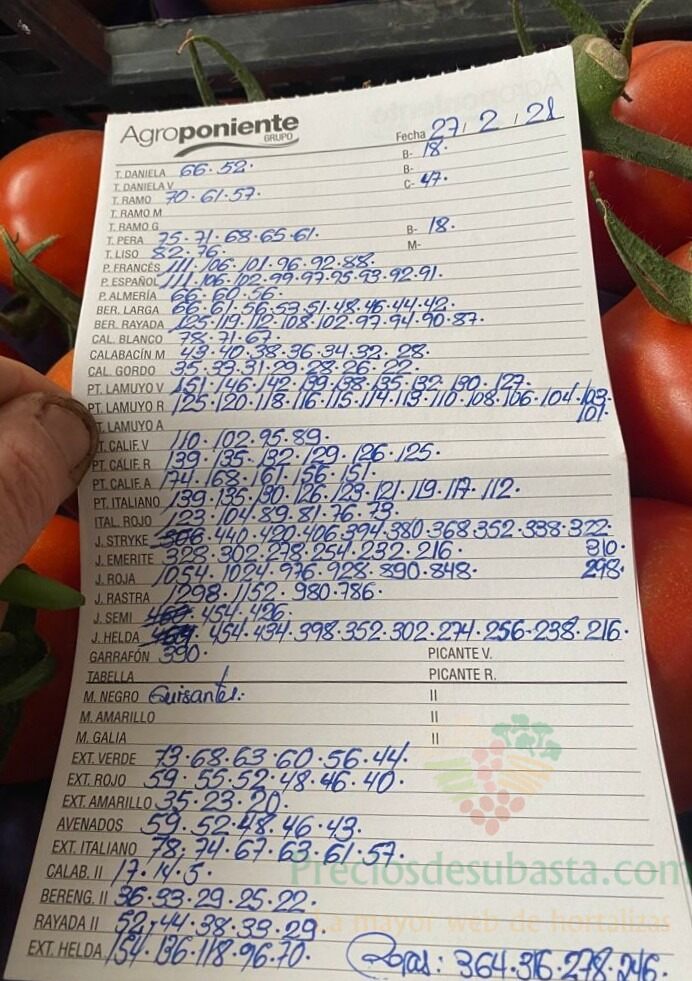 Agroponiente
GRUPO
Fecha 27/2/21
T. DANIELA 66.52. B- 18.
T. DANIELA V B-
T. RAMO 70.61.57. C- 47.
T. RAMO M
T. RAMO G
T. PERA 75.71.68.65.61. B- 18.
T. LISO 82.76. M-
P. FRANCÉS 111.106.101.96.92.88.
P. ESPAÑOL 111.106.102.99.97.95.93.92.91.
P. ALMERÍA 66.60.56.
BER. LARGA 66.61.56.53.51.48.46.44.42.
BER. RAYADA 125.119.112.108.102.97.94.90.87.
CAL. BLANCO 78.71.67.
CALABACÍN M 43.40.38.36.34.32.28.
CAL. GORDO 35.33.31.29.28.26.22.
PT. LAMUYO V 151.146.142.139.138.135.132.130.127.
PT. LAMUYO R 125.120.118.116.115.114.113.110.108.106.104.103.
101.
T. LAMUYO A
T. CALIF. V 110.102.95.89.
PT. CALIF. R 139.135.132.129.126.125.
PT. CALIF. A 174.168.161.156.151.
PT. ITALIANO 139.135.130.126.123.121.119.117.112.
ITAL. ROJO 123.104.89.81.76.73.
J. STRYKE 440.420.406.394.380.368.352.338.322.
310.
J. EMERITE 328.302.278.254.232.216.
298.
J. ROJA 1054.1024.976.928.890.848.
J. RASTRA 1298.1152.980.786.
J. SEMI 454.426.
J. HELDA 454.434.398.352.302.274.256.238.216.
GARRAFÓN 390. PICANTE V.
TABELLA PICANTE R.
M. NEGRO Guisantes: II
M. AMARILLO II
M. GALIA II
EXT. VERDE 73.68.63.60.56.44.
EXT. ROJO 59.55.52.48.46.40.
EXT. AMARILLO 35.23.20.
AVENADOS 59.52.48.46.43.
EXT. ITALIANO 78.74.67.63.61.57.
CALAB. II 17.14.5.
BERENG. II 36.33.29.25.22.
RAYADA II 52.44.38.33.29.
EXT. HELDA 154.136.118.96.70. Rojas: 364.316.278.246.
Preciosdesubasta.com
La mayor web de hortalizas